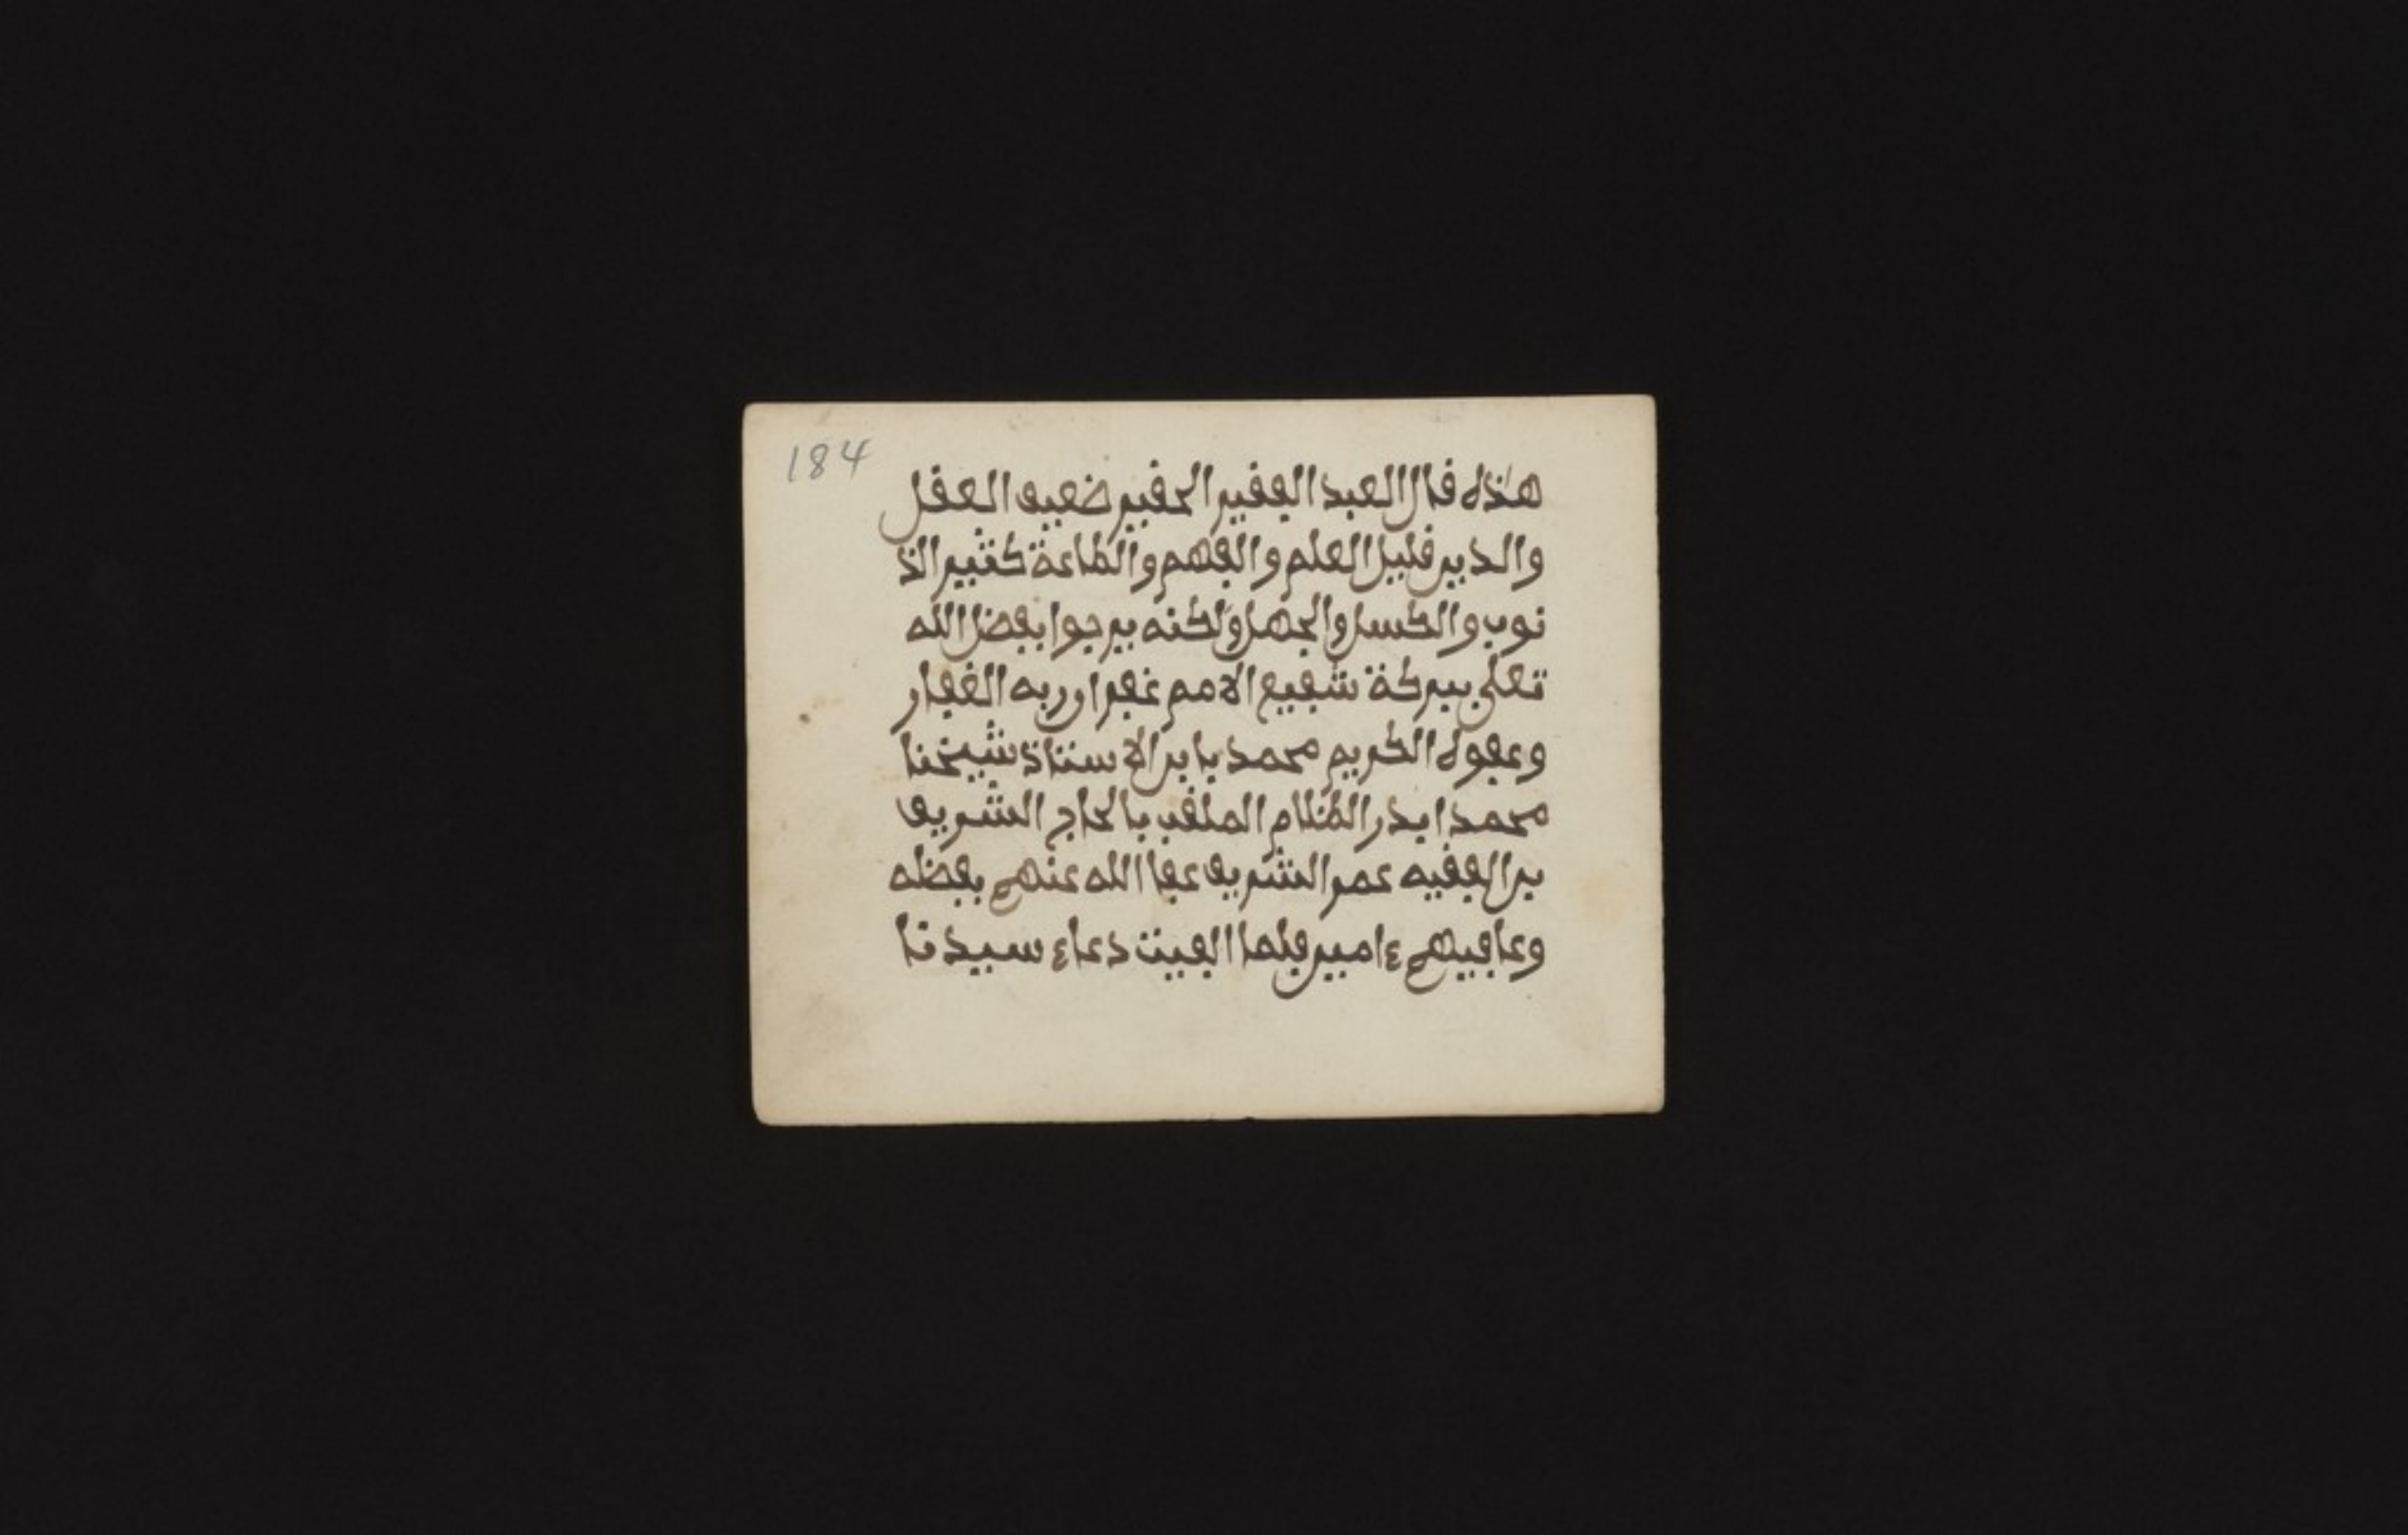 184
هذه قال العبد الفقير الحقير ضعيف العقل
والدين قليل العلم والفهم والطاعة كثير الذ
نوب والكسل والجهل ولكنه يرجوا بفضل الله
تعلى ببركة شفيع الامم غفر اوزره الغفار
وعفوه الكريم محمد بابر الاستاذ شيخنا
محمد ابدر الظلام الملقب بالحاج الشريف
بن الفقيه عمر الشريف عفا الله عنهم بفضله
وعافيهم ءامين فلما الفيت دعاء سيدنا